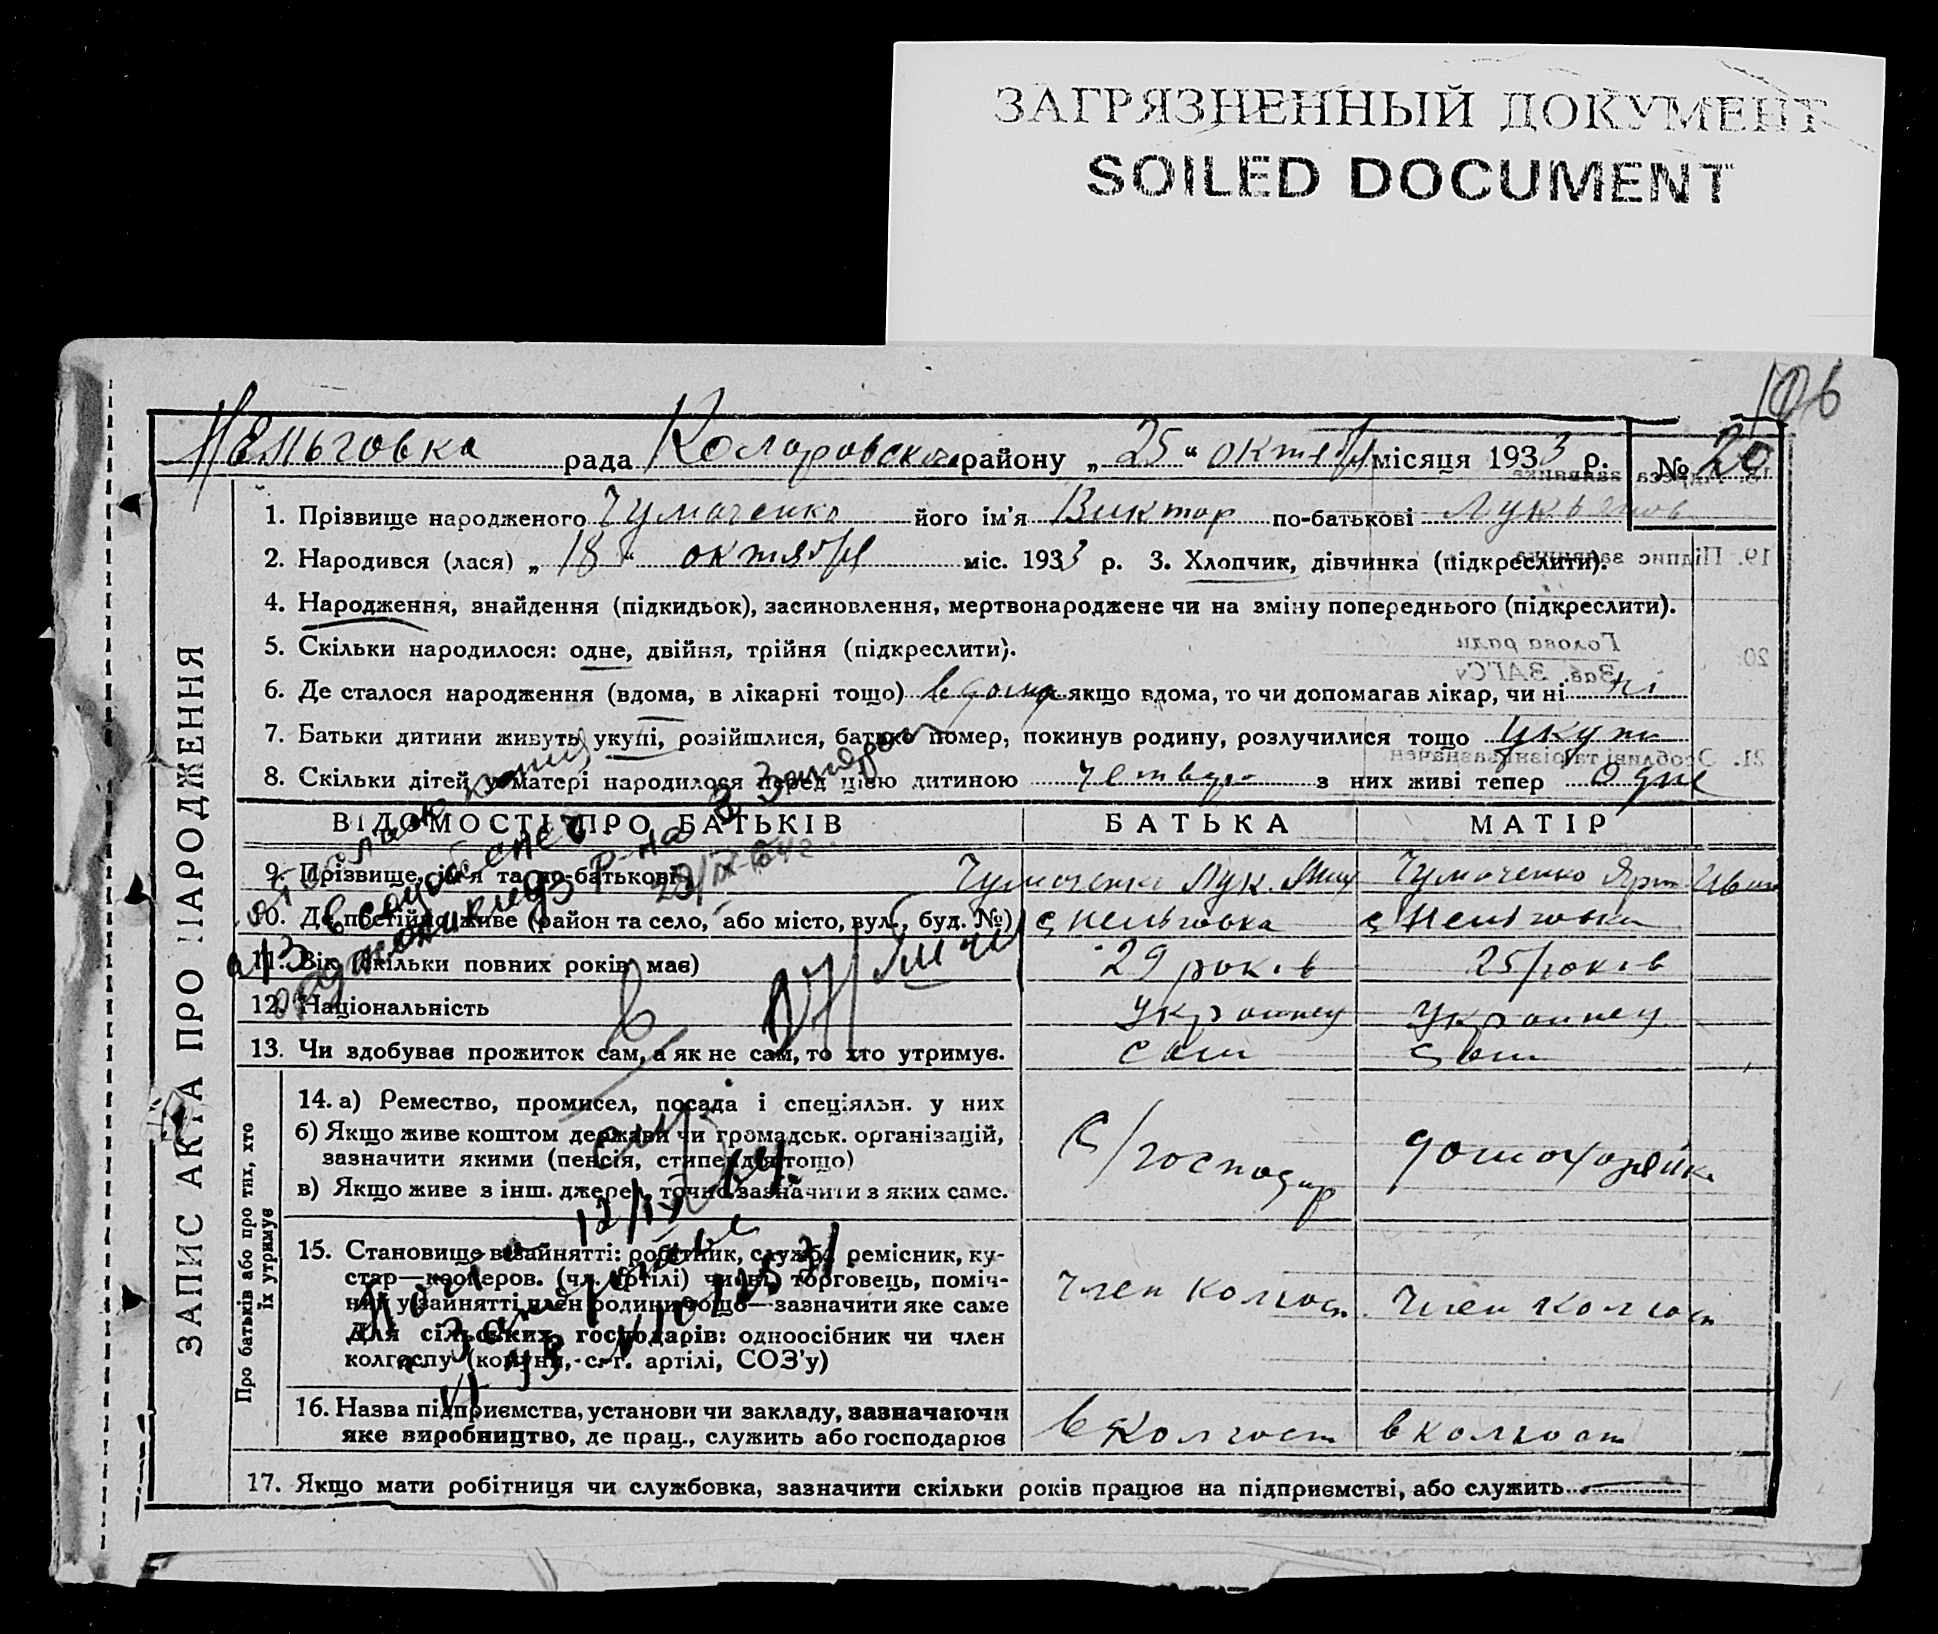 ЗАГРЯЗНЕННЫЙ ДОКУМЕНТ
SOILED DOCUMENT
196
Нельговка рада Коларовского району „ 25 “ октября місяця 1933 р. № 20
1. Прізвище народженого Чумаченко його ім'я Виктор по-батькові Лукьянов
2. Народився (лася) „ 18 “ октября міс. 1933 р. 3. Хлопчик, дівчинка (підкреслити).
4. Народження, знайдення (підкидьок), засиновлення, мертвонароджене чи на зміну попереднього (підкреслити).
5. Скільки народилося: одне, двійня, трійня (підкреслити).
6. Де сталося народження (вдома, в лікарні тощо) вдома якщо вдома, то чи допомагав лікар, чи ні ні
7. Батьки дитини живуть укупі, розійшлися, батько помер, покинув родину, розлучилися тощо укупі
8. Скільки дітей у матері народилося перед цією дитиною четверо з них живі тепер одне
ВІДОМОСТІ ПРО БАТЬКІВ БАТЬКА МАТІР
9. Прізвище, ім'я та по-батькові Чумаченко Лук. Мих Чумаченко Иван
10. Де постійно живе (район та село, або місто, вул., буд. №) с Нельговка с Нельговка
11. Вік (скільки повних років має) 29 років 25 років
12. Національність украинец украинец
13. Чи здобував прожиток сам, а як не сам, то хто утримує. сам сам
ЗАПИС АКТА ПРО НАРОДЖЕННЯ
Про батьків або про тих, хто їх утримує
14. а) Ремество, промисел, посада і спеціяльн. у них
б) Якщо живе коштом держави чи громадськ. організацій,
зазначити якими (пенсія, стипендія тощо)
в) Якщо живе з інш. джерел, точно зазначити з яких саме.
С/господар домохозяйка
15. Становище в зайнятті: робітник, службов. ремісник, ку-
стар—кооперов. (чл. артілі) чи ні, торговець, поміч-
ник у зайнятті член родини тощо—зазначити яке саме
Для сільських господарів: одноосібник чи член
колгоспу (комуни, с.-г. артілі, СОЗ'у)
член колгосп. член колгосп
16. Назва підприємства, установи чи закладу, зазначаючи
яке виробництво, де прац., служить або господарює
в колгосп в колгосп
17. Якщо мати робітниця чи службовка, зазначити скільки років працює на підприємстві, або служить